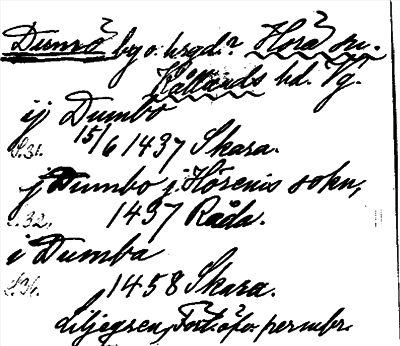 Dumbo? by o. hrgd.? Hora? sn.
Kållands hd. Vg.
ij Dumbo
S.31. 15/6 1437 Skara.
j Dumbo j Hörenis sokn,
S.32, 1437 Råda.
i Dumba
1458 Skara.
Liljegren, permbr.